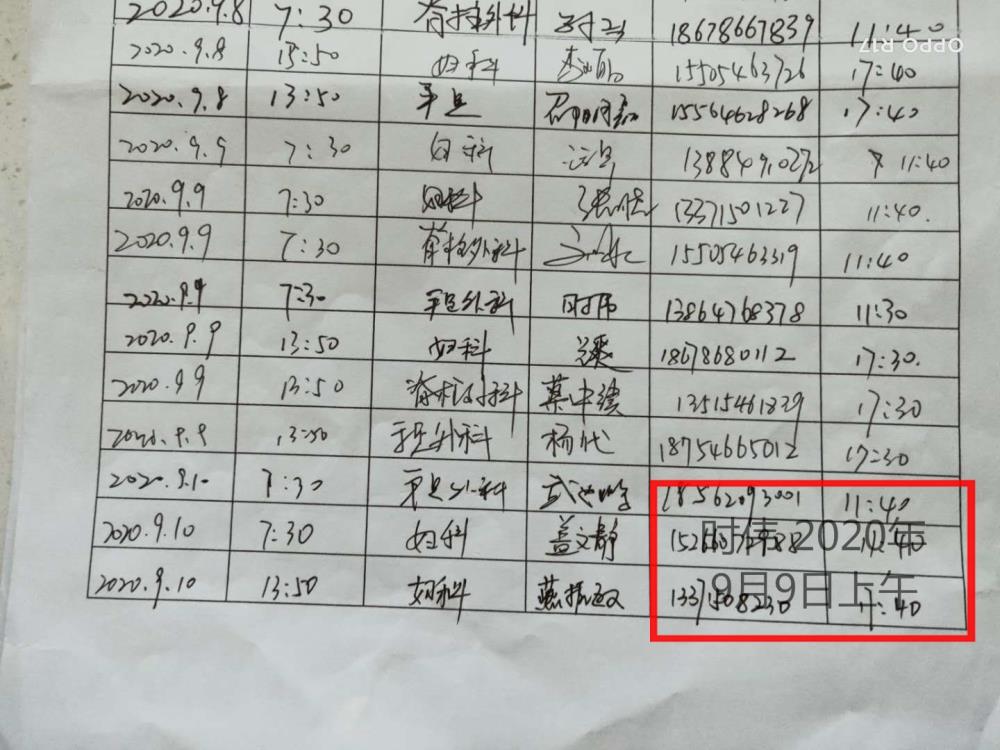 2020.9.8 7:30 脊柱外科 18678667839 11:40
OPPO R17
2020.9.8 13:50 妇科 15505463726 17:40
2020.9.8 13:50 手足 15564628268 17:40
2020.9.9 7:30 妇科 13884910272 11:40
2020.9.9 7:30 妇科 张晓 13371501227 11:40.
2020.9.9 7:30 脊柱外科 15505463319 11:40
2020.9.9 7:30 手足外科 时伟 13864768378 11:30
2020.9.9 13:50 妇科 18678680112 17:30.
2020.9.9 13:50 脊柱外科 13515461839 17:30
2020.9.9 13:50 手足外科 杨代 18754665012 17:30
2020.9.10 7:30 手足外科 18562093001 11:40
2020.9.10 7:30 妇科 盖文静 11:40
2020.9.10 13:50 妇科 燕振 13371508230 17:40
时倩 2020年
9月9日上午